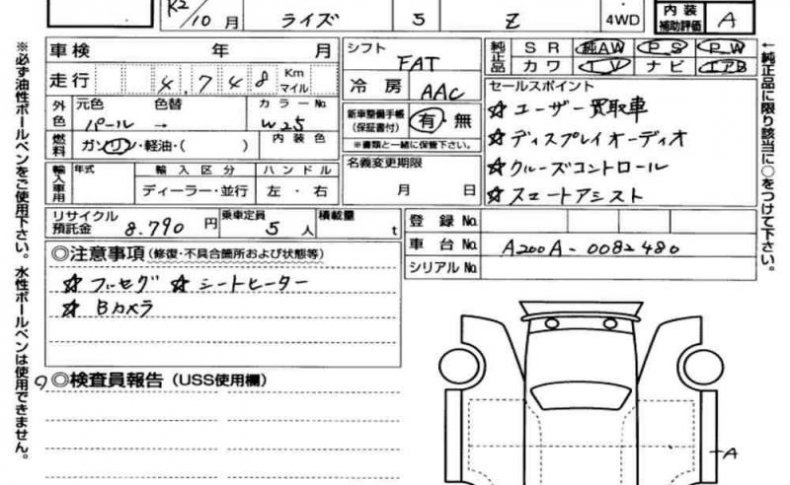 R2/10月 ライズ 5 Z 4WD 内装補助評価 A
車検 年 月
走行 4.748 Km マイル
外色 元色 色替 カラーNo.
パール → W25
燃料 ガソリン・軽油・( ) 内装色
輸入車用 年式 輸入区分 ハンドル
ディーラー・並行 左・右
リサイクル預託金 8.790円 乗車定員 5人 積載量 t
シフト FAT
冷房 AAC
新車整備手帳(保証書付) 有・無
※書類と一緒に保管下さい。
名義変更期限
月 日
純正品 SR 純AW PS PW
カワ TV ナビ エアB
セールスポイント
☆ユーザー買取車
☆ディスプレイオーディオ
☆クルーズコントロール
☆スマートアシスト
登録No.
車台No. A200A-0082480
シリアルNo.
◎注意事項(修復・不具合箇所および状態等)
☆フルセグ ☆シートヒーター
☆Bカメラ
◎検査員報告(USS使用欄)
A
※必ず油性ボールペンをご使用下さい。水性ボールペンは使用できません。
←純正品に限り該当に○をつけて下さい。